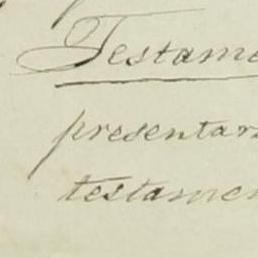 Testame
presentar
testamen